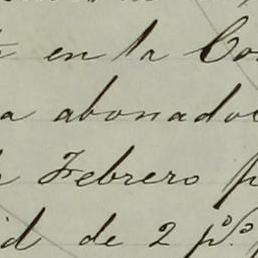 en la Co
a abonado
Febrero p
id de 2 p%